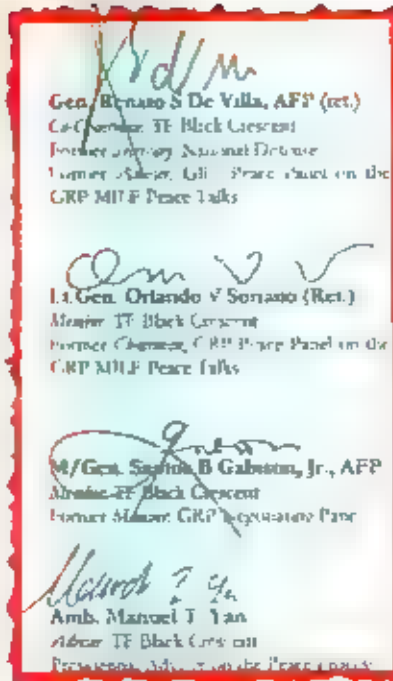 Gen. Renato S De Villa, AFP (ret.)
Co-Chairman TF Black Crescent
Former Secretary National Defense
Former Adviser, Peace Panel on the
GRP MILF Peace Talks
Lt.Gen. Orlando V Soriano (Ret.)
Member TF Black Crescent
Former Chairman, GRP Peace Panel on the
GRP MILF Peace Talks
M/Gen. Santos B Gabison, Jr., AFP
Member TF Black Crescent
Former Member GRP Negotiating Panel
Amb. Manuel T. Yan
Adviser TF Black Crescent
Presidential Adviser on the Peace Process